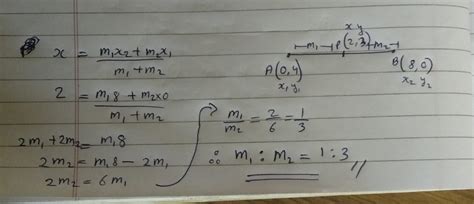 x = (m₁x₂ + m₂x₁) / (m₁ + m₂)
2 = (m₁8 + m₂x0) / (m₁ + m₂)
2m₁ + 2m₂ = m₁8
2m₂ = m₁8 − 2m₁
2m₂ = 6m₁
x y
m₁ P(2,3) m₂
A(0,4) B(8,0)
x₁ y₁ x₂ y₂
m₁/m₂ = 2/6 = 1/3
∴ m₁ : m₂ = 1:3 //